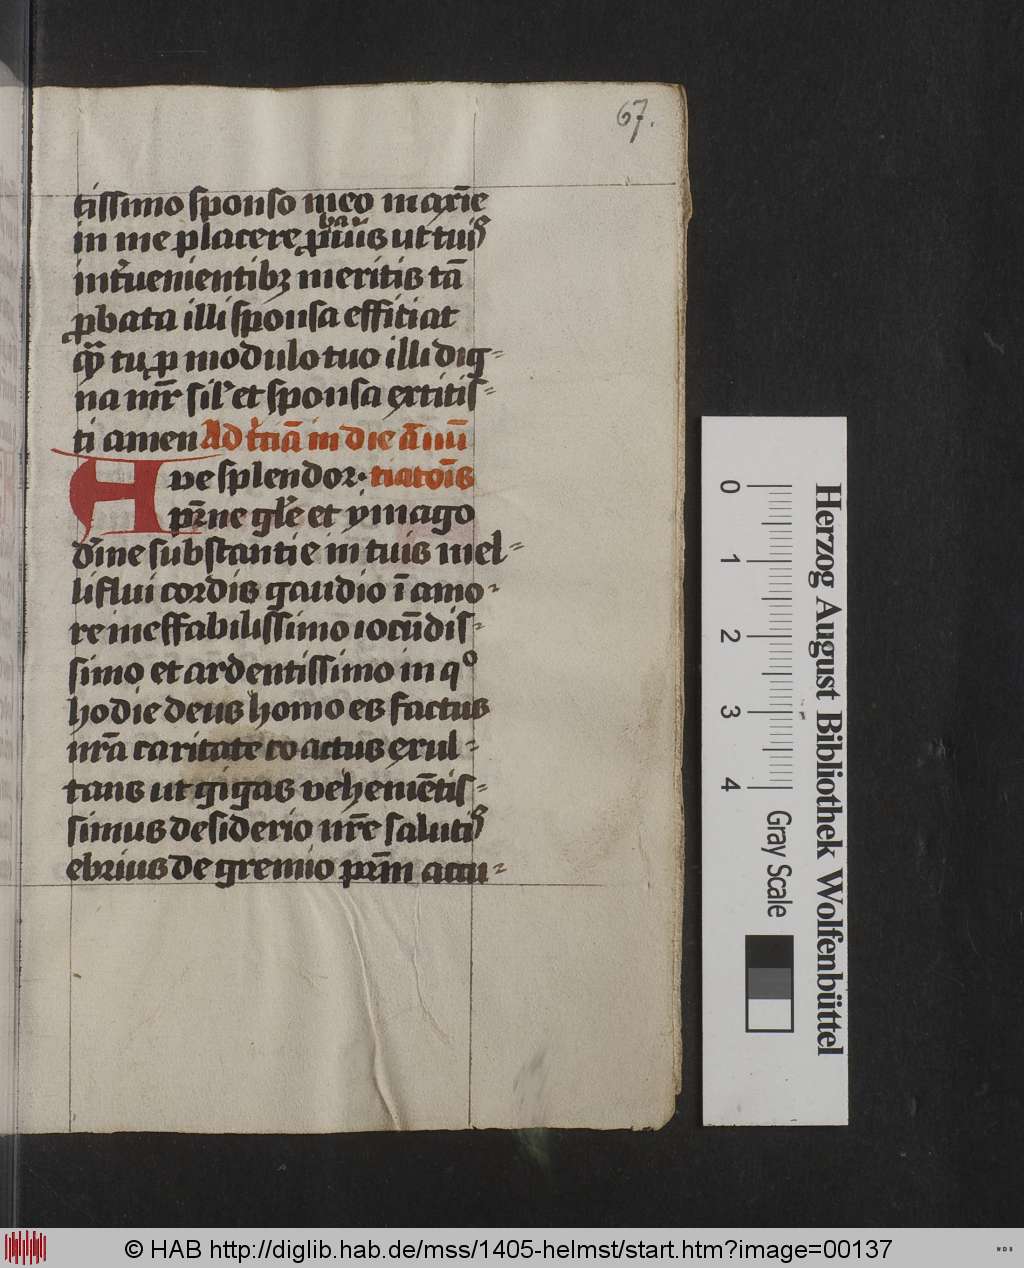 67.
tissimo sponso meo maxīe
in me placere ut tuis
intˀuenientibꝫ meritis tā
ꝓbata illi sponsa efficiat
qͣ tu ꝑ modulo tuo illi dig⸗
na mr̄ silˀ et sponsa extitis⸗
ti amen Ad tˀciā in die ānū
Ave splendor· tiatoīs
pr̄ne glˀe et ymago
diˀne substantie in tuis mel⸗
liflui cordis gaudio ī amo⸗
re ineffabilissimo iocūdis⸗
simo et ardentissimo in qͦ
hodie deus homo es factus
nr̄a caritate coactus exul⸗
tans ut gigas vehemētis⸗
simus desiderio nr̄e salutis
ebrius de gremio pr̄m accu⸗
0 1 2 3 4
Gray Scale
Herzog August Bibliothek Wolfenbüttel
© HAB http://diglib.hab.de/mss/1405-helmst/start.htm?image=00137
WDB